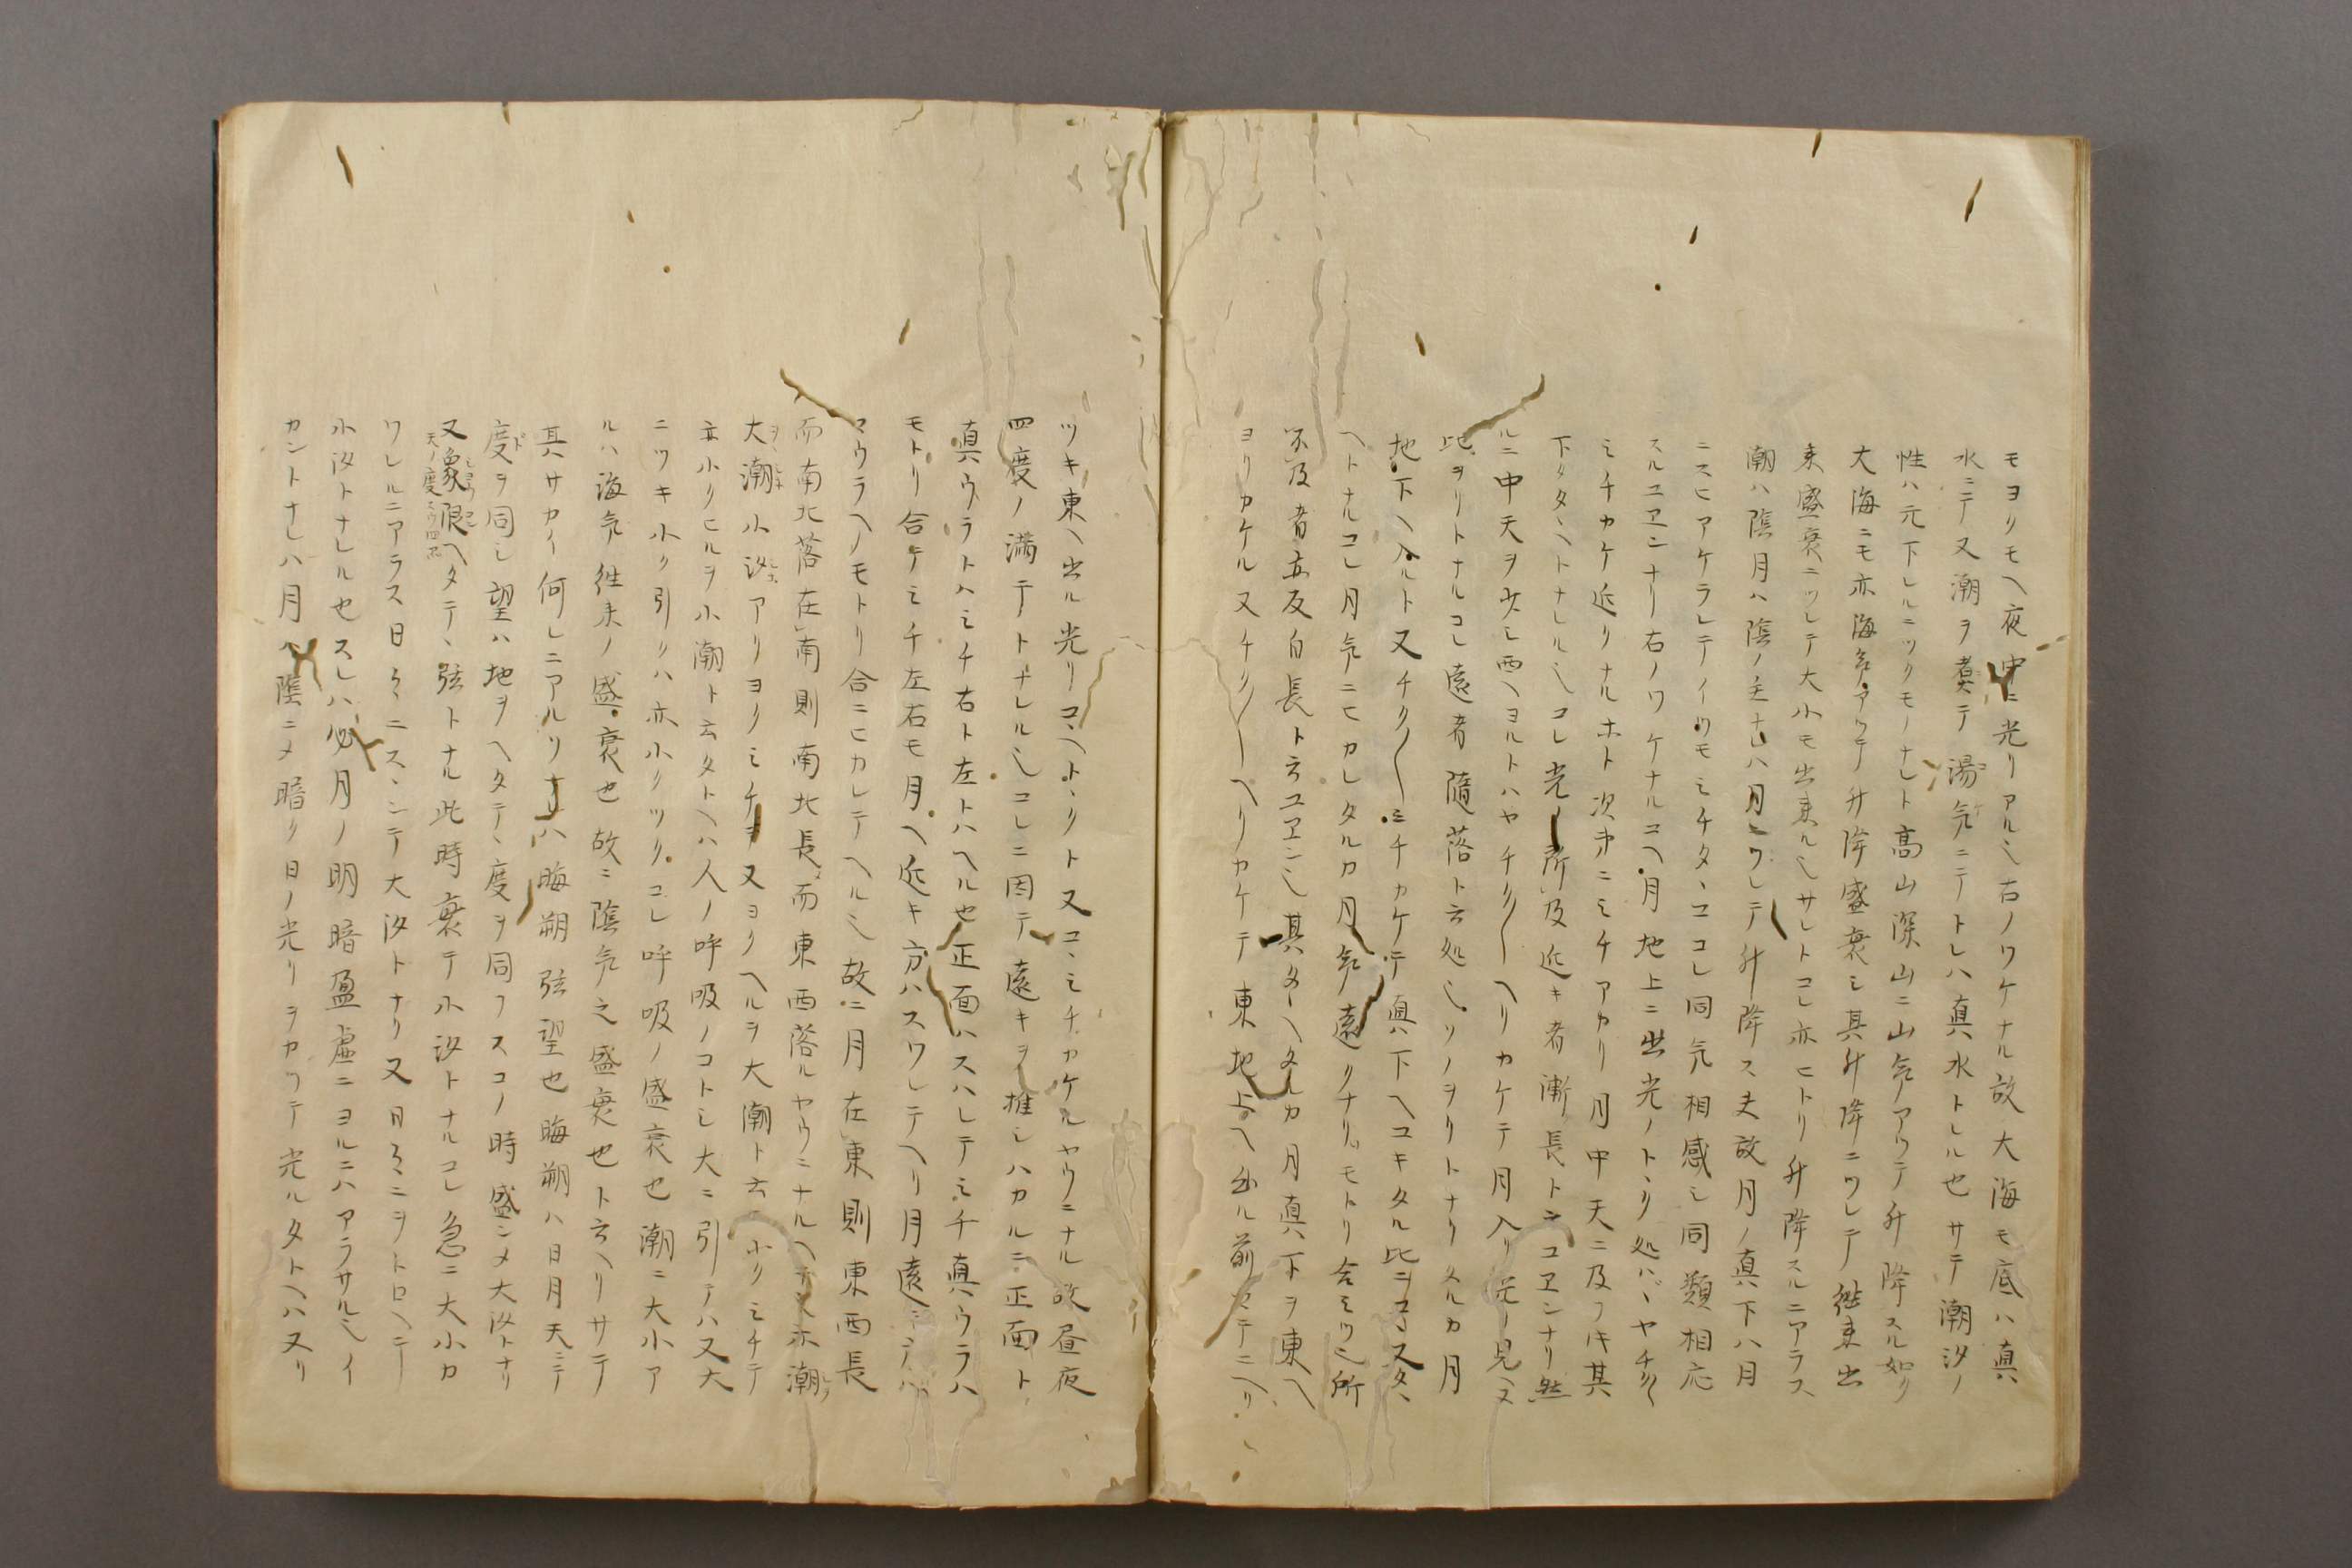 モヨリモヘ夜中ニ光リアル〆右ノワケナル故大海モ底ハ真
水ニテ又潮ヲ煮テ湯氣ニテトレハ真水トレル也サテ潮汐ノ
性ハ元下レルニツクモノナレト高山深山ニ山氣アツテ升降スル如ク
大海ニモ亦海氣アツテ升降盛衰シ其升降ニツレテ徃来出
来盛衰ニツレテ大小モ出来ル〆サレトコレ亦ヒトリ升降スルニアラス
潮ハ陰月ハ陰ノ主ナレハ月ニツレテ升降ス夫故月ノ真下ハ月
ニスヒアケラレテイツモミチタヽココレ同気相感シ同類相応
スルユエンナリ右ノワケナルユヘ月地上ニ出光ノトヽク処ハハヤチク〱
ミチカケ近クナルホト次第ニミチアカリ月中天ニ及フキ其
下タタヽヘトナレル〆コレ光ノ所及近キ者漸長トコユエンナリ然
ルニ中天ヲ少シ西ヘヨルトハヤチク〱ヘリカケテ月入リ光ノ見ヘヌ
此ヲリトナルコレ遠者隨落ト云処〆ソノヲリトナリタルカ月
地下ヘ入ルト又チク〱ミチカケテ真下ヘコキタル比ニコヽヌタヽ
ヘトナルコレ月氣ニヒカレタルカ月氣遠クナリモトリ合ミツ〆所
不及者亦反自長ト云ユエン〆其タヽヘタルカ月真下ヲ東ヘ
ヨリカケル又チク〱ヘリカケテ東地上ヘ出ル前マテニヘリ
ツキ東ヘ出ル光リコヽヘトヽクト又コヽミチカケルヤウニナル故昼夜
四度ノ満干トナレル〆コレニ因テ遠キヲ推シハカルニ正面ト
真ウラトハミチ右ト左トハヘル也正面ハスハレテミチ真ウラハ
モトリ合ケミチ左右モ月ヘ近キ方ハスワレテヘリ月遠シテハ
マウラヘノモトリ合ニヒカレテヘル〆故ニ月在東則東西長
而南北落在南則南北長而東西落ルヤウニナルヘテン亦潮
大潮小汐アリヨクミチテ又ヨクヘルヲ大潮ト云小クミチテ
亦小クヒルヲ小潮ト云タトヘハ人ノ呼吸ノコトシ大ニ引テハ又大
ニツキ小ク引クハ亦小クツクコレ呼吸ノ盛衰也潮ニ大小ア
ルハ海氣徃来ノ盛衰也故ニ陰氣之盛衰也ト云ヘリサテ
其サカイ何レニアルソナレハ晦朔弦望也晦朔ハ日月天ニテ
度ヲ同シ望ハ地ヲヘタテヽ度ヲ同フスコノ時盛ンメ大汐トナリ
又象限ヘタテヽ弦トナル此時衰テ小汐トナルコレ急ニ大小カ
ワレルニアラス日〻ニスヽンテ大汐トナリ又日〻ニヲトロヘテ
小汐トナレル也スレハ必月ノ明暗盈虚ニヨルニハアラサル〆イ
カントナレハ月ハ陰ニメ暗ク日ノ光リヲカツテ光ルタトヘハ又リ